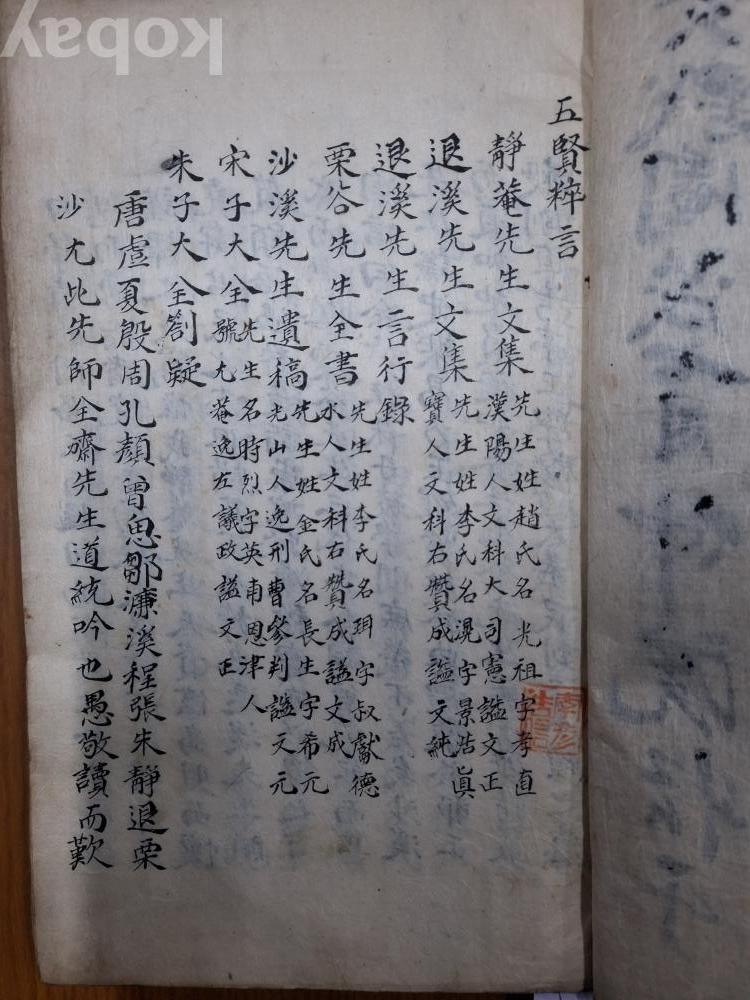 五賢粹言
靜菴先生文集 先生姓趙氏名光祖字孝直
漢陽人文科大司憲謚文正
退溪先生文集 先生姓李氏名滉字景浩眞
寶人文科右贊成謚文純
退溪先生言行錄
栗谷先生全書 先生姓李氏名珥字叔獻德
水人文科右贊成謚文成
沙溪先生遺稿 先生姓金氏名長生字希元
光山人逸刑曹參判謚文元
宋子大全 先生名時烈字英甫恩津人
號尤菴逸左議政謚文正
朱子大全劄疑
唐虞夏殷周孔顏曾思鄒濂溪程張朱靜退栗
沙尤此先師全齋先生道統吟也愚敬讀而歎
kobay